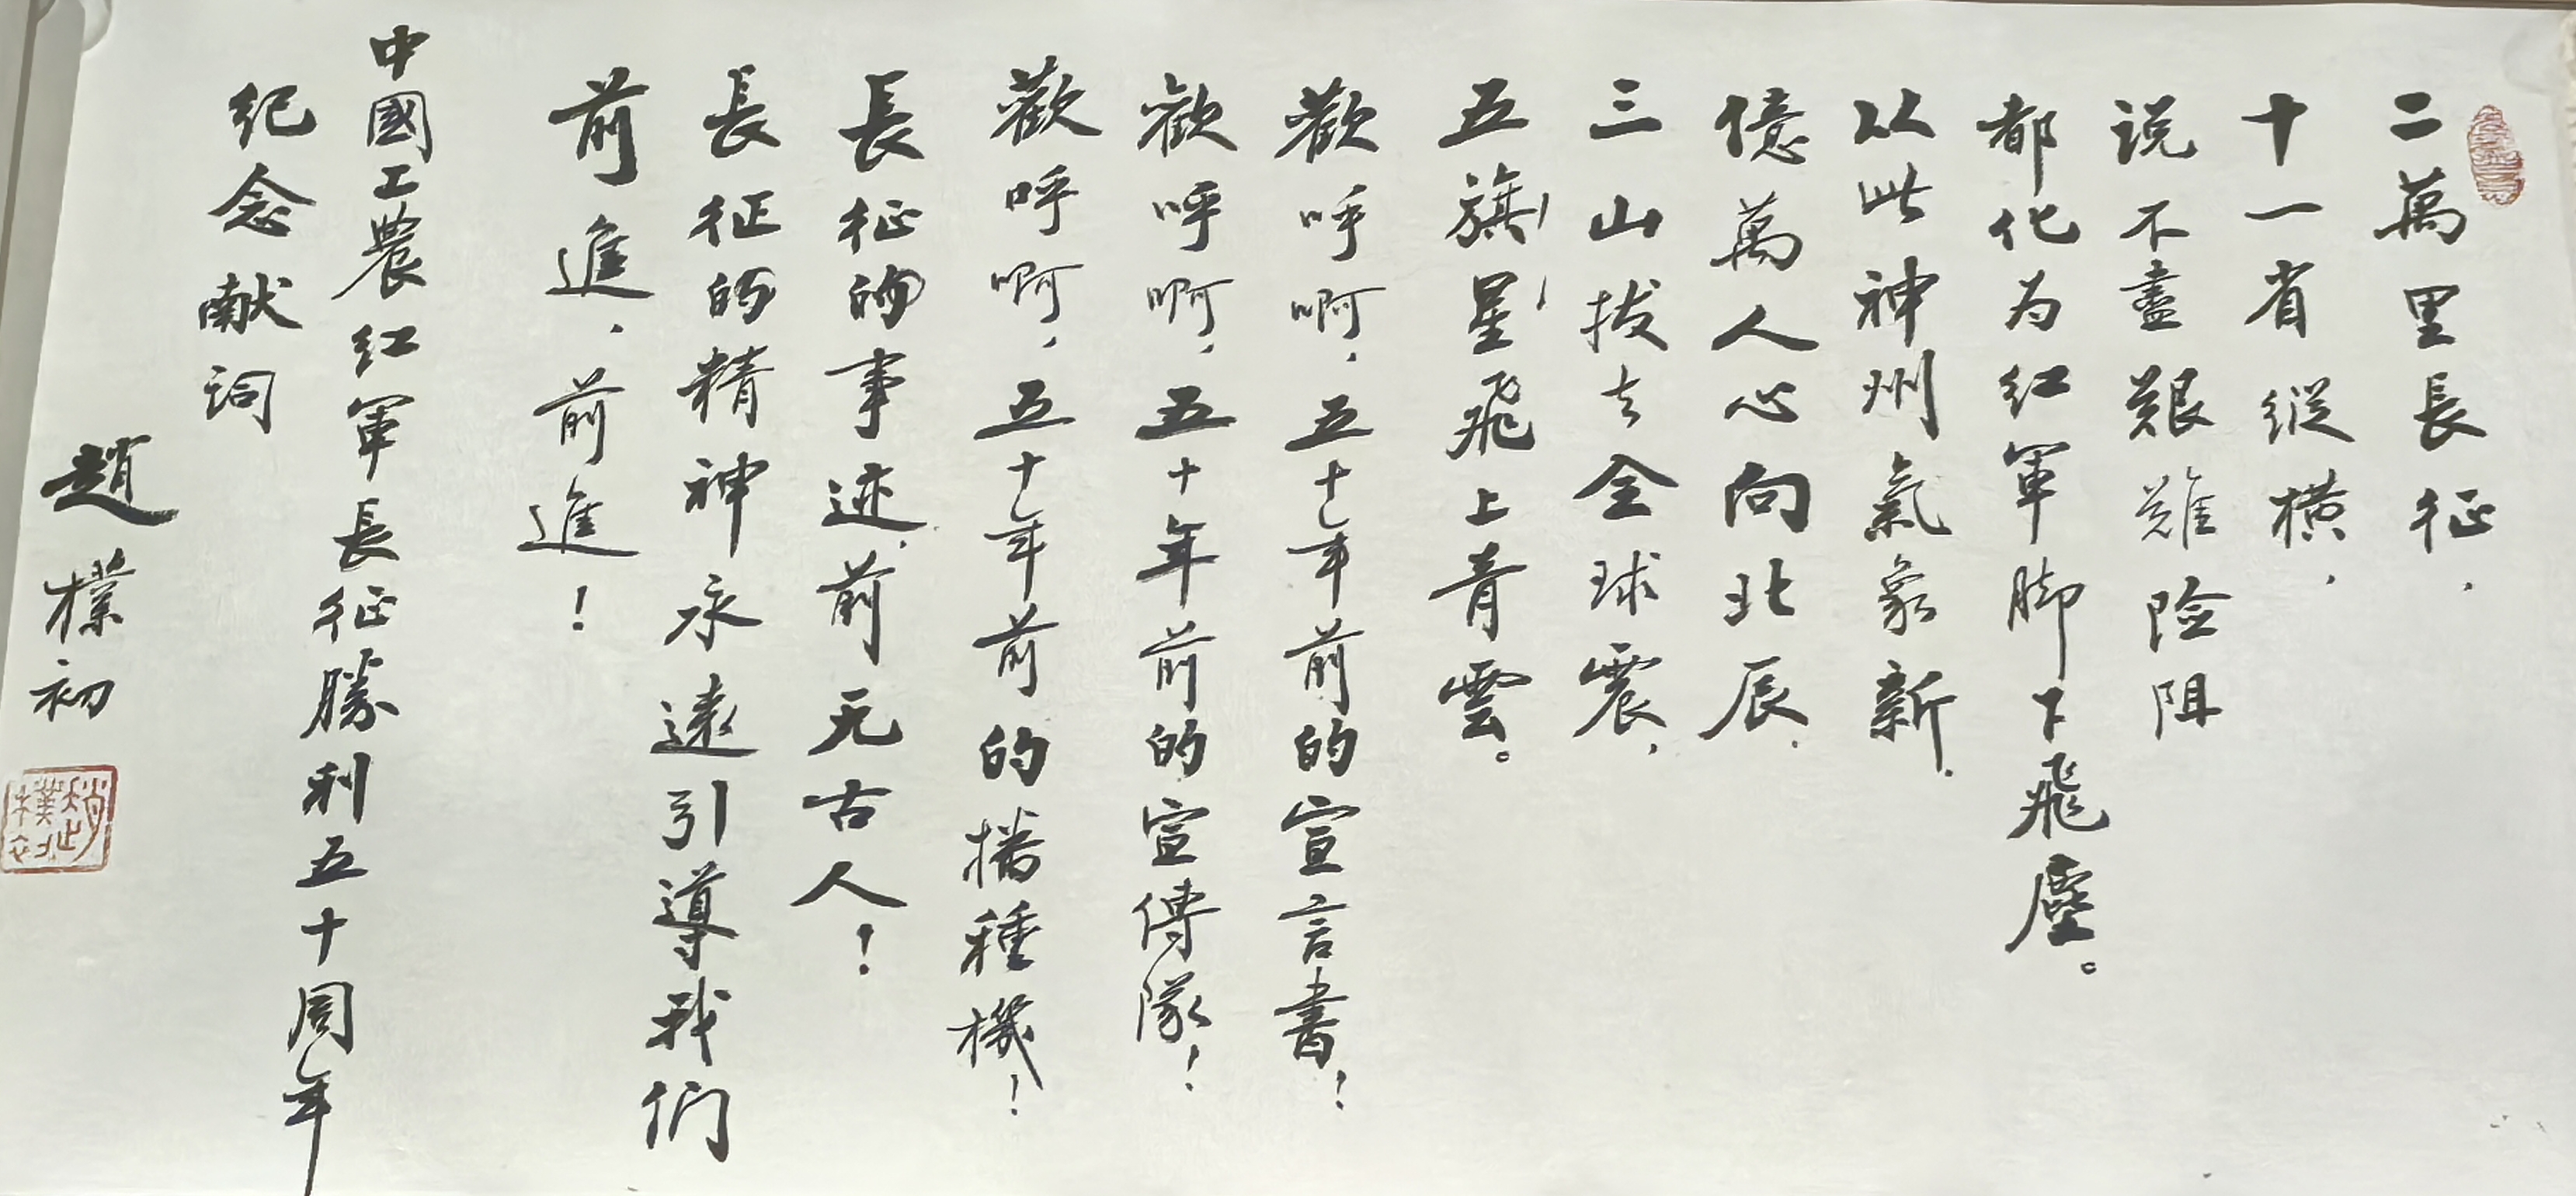 二萬里長征，
十一省縱橫，
说不盡艱難险阻
都化为红軍脚下飛塵。
以此神州氣象新，
億萬人心向北辰，
三山拔去全球震，
五旗星飛上青雲。
歡呼啊，五十年前的宣言書！
歡呼啊，五十年前的宣傳隊！
歡呼啊，五十年前的播種機！
長征的事迹，前无古人！
長征的精神永遠引導我们
前進，前進！
中國工農红軍長征勝利五十周年
纪念献词
趙樸初